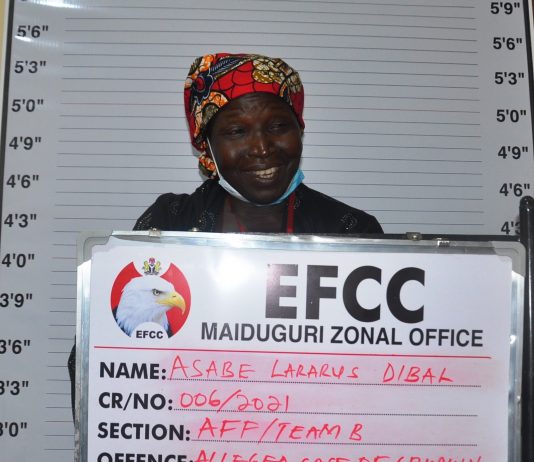 5'9"
5'6"
5'3"
5'0"
4'9"
4'6"
4'3"
4'0"
3'9"
3'6"
3'3"
3'0"
5'9"
5'6"
5'3"
5'0"
4'9"
4'6"
EFCC
EFCC
MAIDUGURI ZONAL OFFICE
NAME: ASABE LARARUS DIBAL
CR/NO: 006/2021
SECTION: AFF/TEAM B
OFFENCE: ALLEGED CASE OF